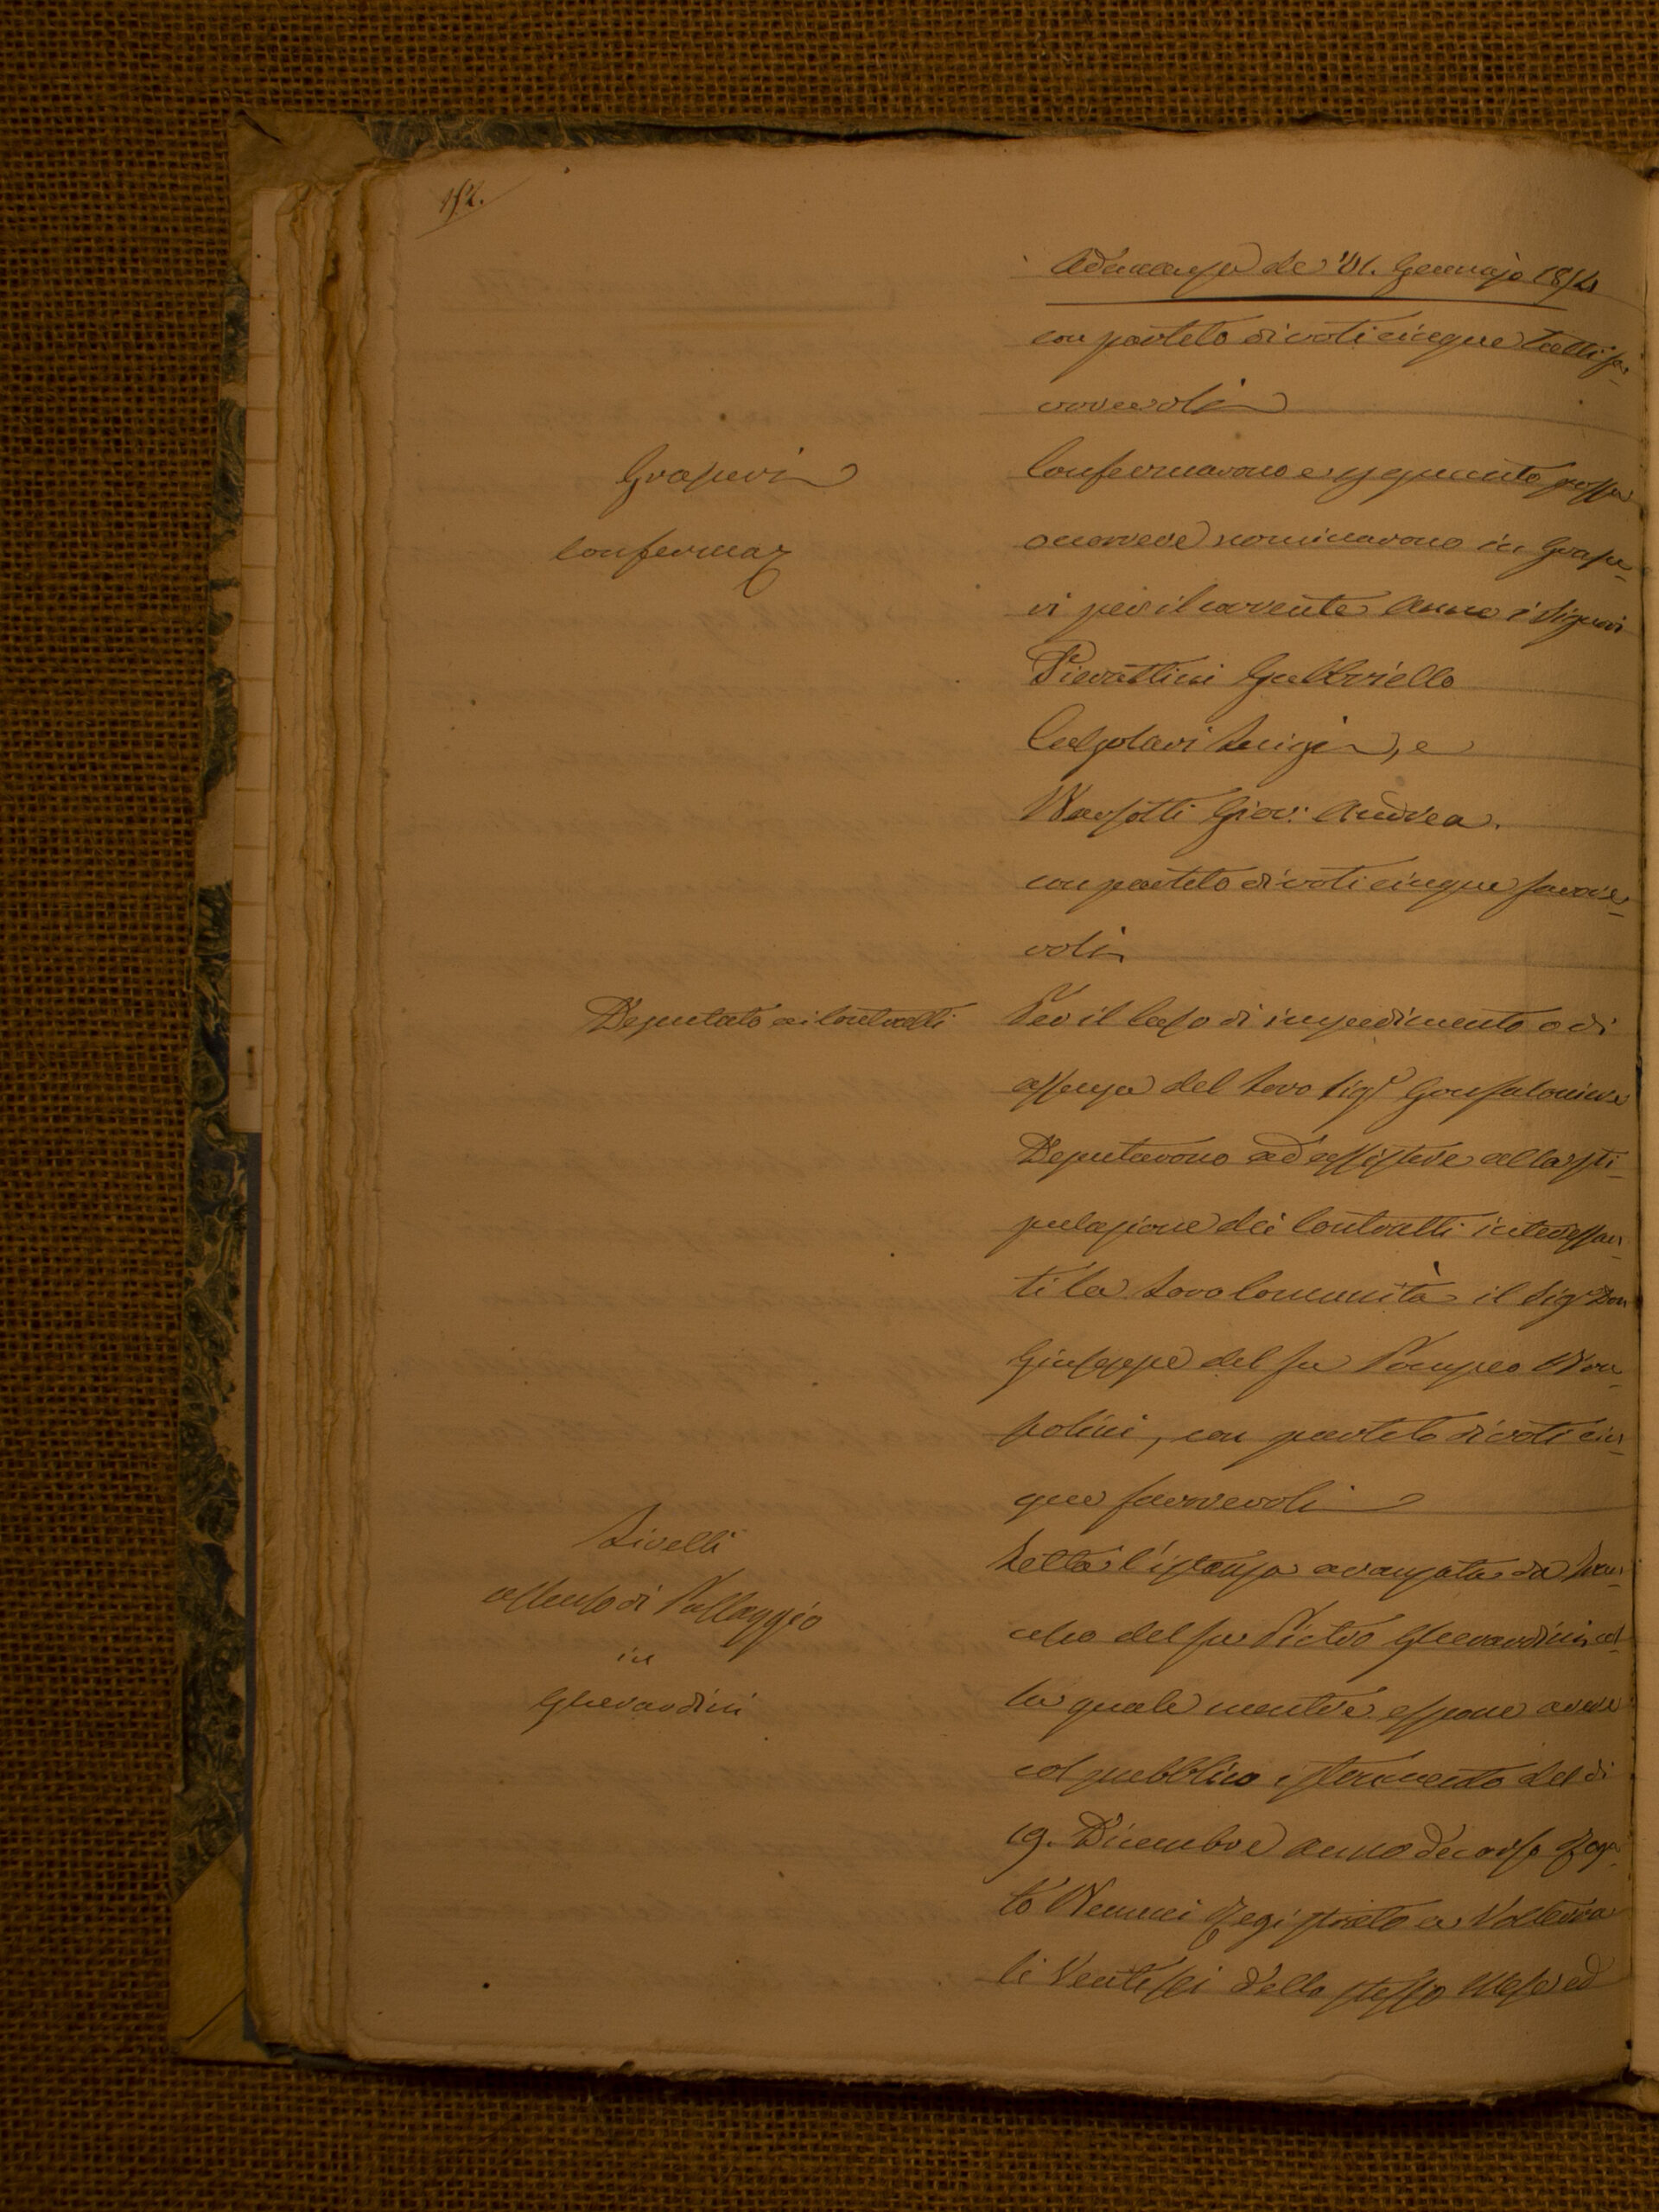 152.
Adunanza de' 31. Gennajo 1854
con partito di voti cinque tutti fa-
vorevoli
Grasceri
Conferma
Confermarono e seguendo possa
occorrere nominarono in Grasce-
ri per il corrente Anno i Signori
Pierattini Gabbriello
Calzolari Luigi, e
Marsotti Giov: Andrea.
con partito di voti cinque favore-
voli
Deputato ai Contratti
Per il Caso di impedimento o di
assenza del Loro Sigr Gonfaloniere
Deputarono ad assistere alla sti-
pulazione dei Contratti interessan-
ti la Loro Comunità il Sigr
Giuseppe del fu Pompeo
solini, con partito di voti cin-
que favorevoli
Livelli
assenso di Passaggio
in
Gherardini
Letta l'istanza avanzata da
del fu Pietro Gherardini
la quale mentre espone avere
col pubblico istrumento del dì
19. Dicembre anno decorso Roga-
to Nenci Registrato a Volterra
li Ventisei dello stesso Mese ed